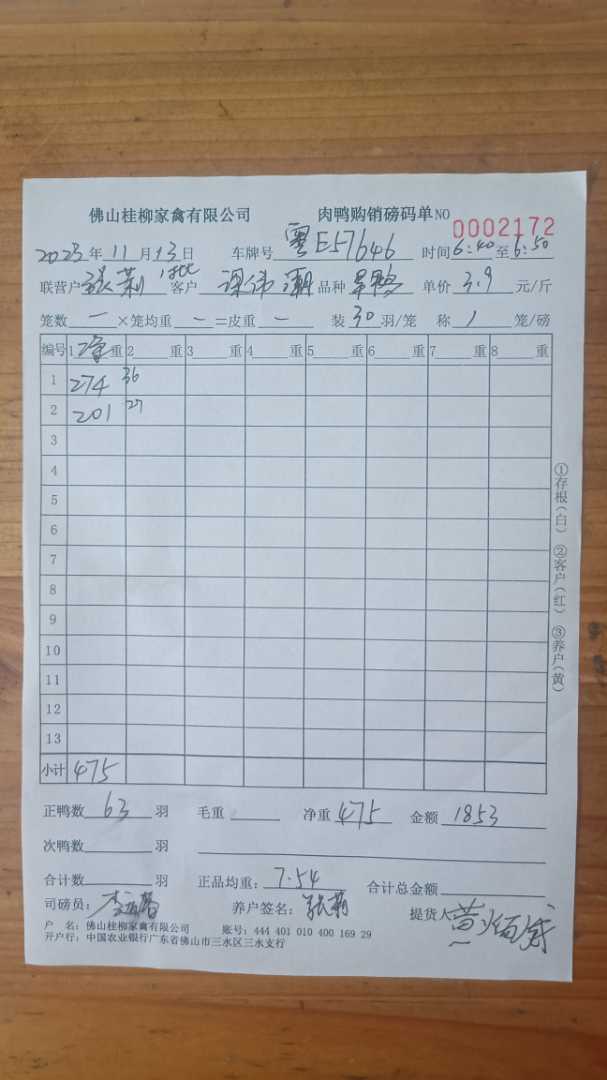 佛山桂柳家禽有限公司 肉鸭购销磅码单 NO 0002172
2023年11月13日 车牌号 粤E57646 时间6:40至6:50
联营户 张莉 客户 谭伟潮 品种 旱鸭 单价 3.9 元/斤
笼数 — ×笼均重 — =皮重 — 装30羽/笼 称 1 笼/磅
编号 1净重 2 重 3 重 4 重 5 重 6 重 7 重 8 重
1 274 36
2 201 27
3
4
5
6
7
8
9
10
11
12
13
小计 475
正鸭数 63 羽 毛重 净重 475 金额 1853
次鸭数 羽
合计数 羽 正品均重: 7.54 合计总金额
司磅员: 养户签名: 张莉 提货人
户 名: 佛山桂柳家禽有限公司 账号: 444 401 010 400 169 29
开户行: 中国农业银行广东省佛山市三水区三水支行
①存根(白) ②客户(红) ③养户(黄)